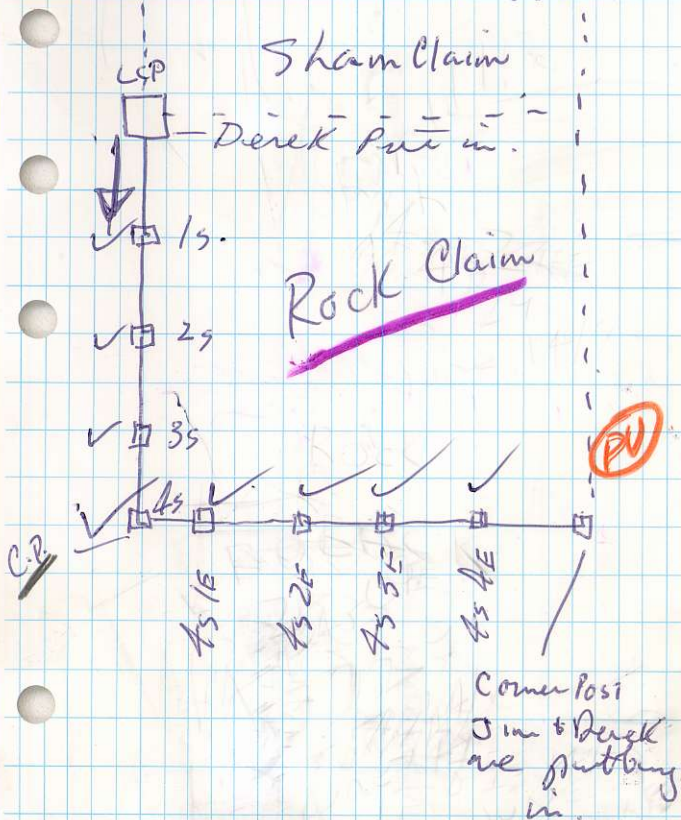 Sham Claim
LCP
Derek Put in.
1s.
Rock Claim
2s
3s
PV
4s
C.P.
4s 1E
4s 2E
4s 3E
4s 4E
Corner Post
Jim & Derek
are putting
in.